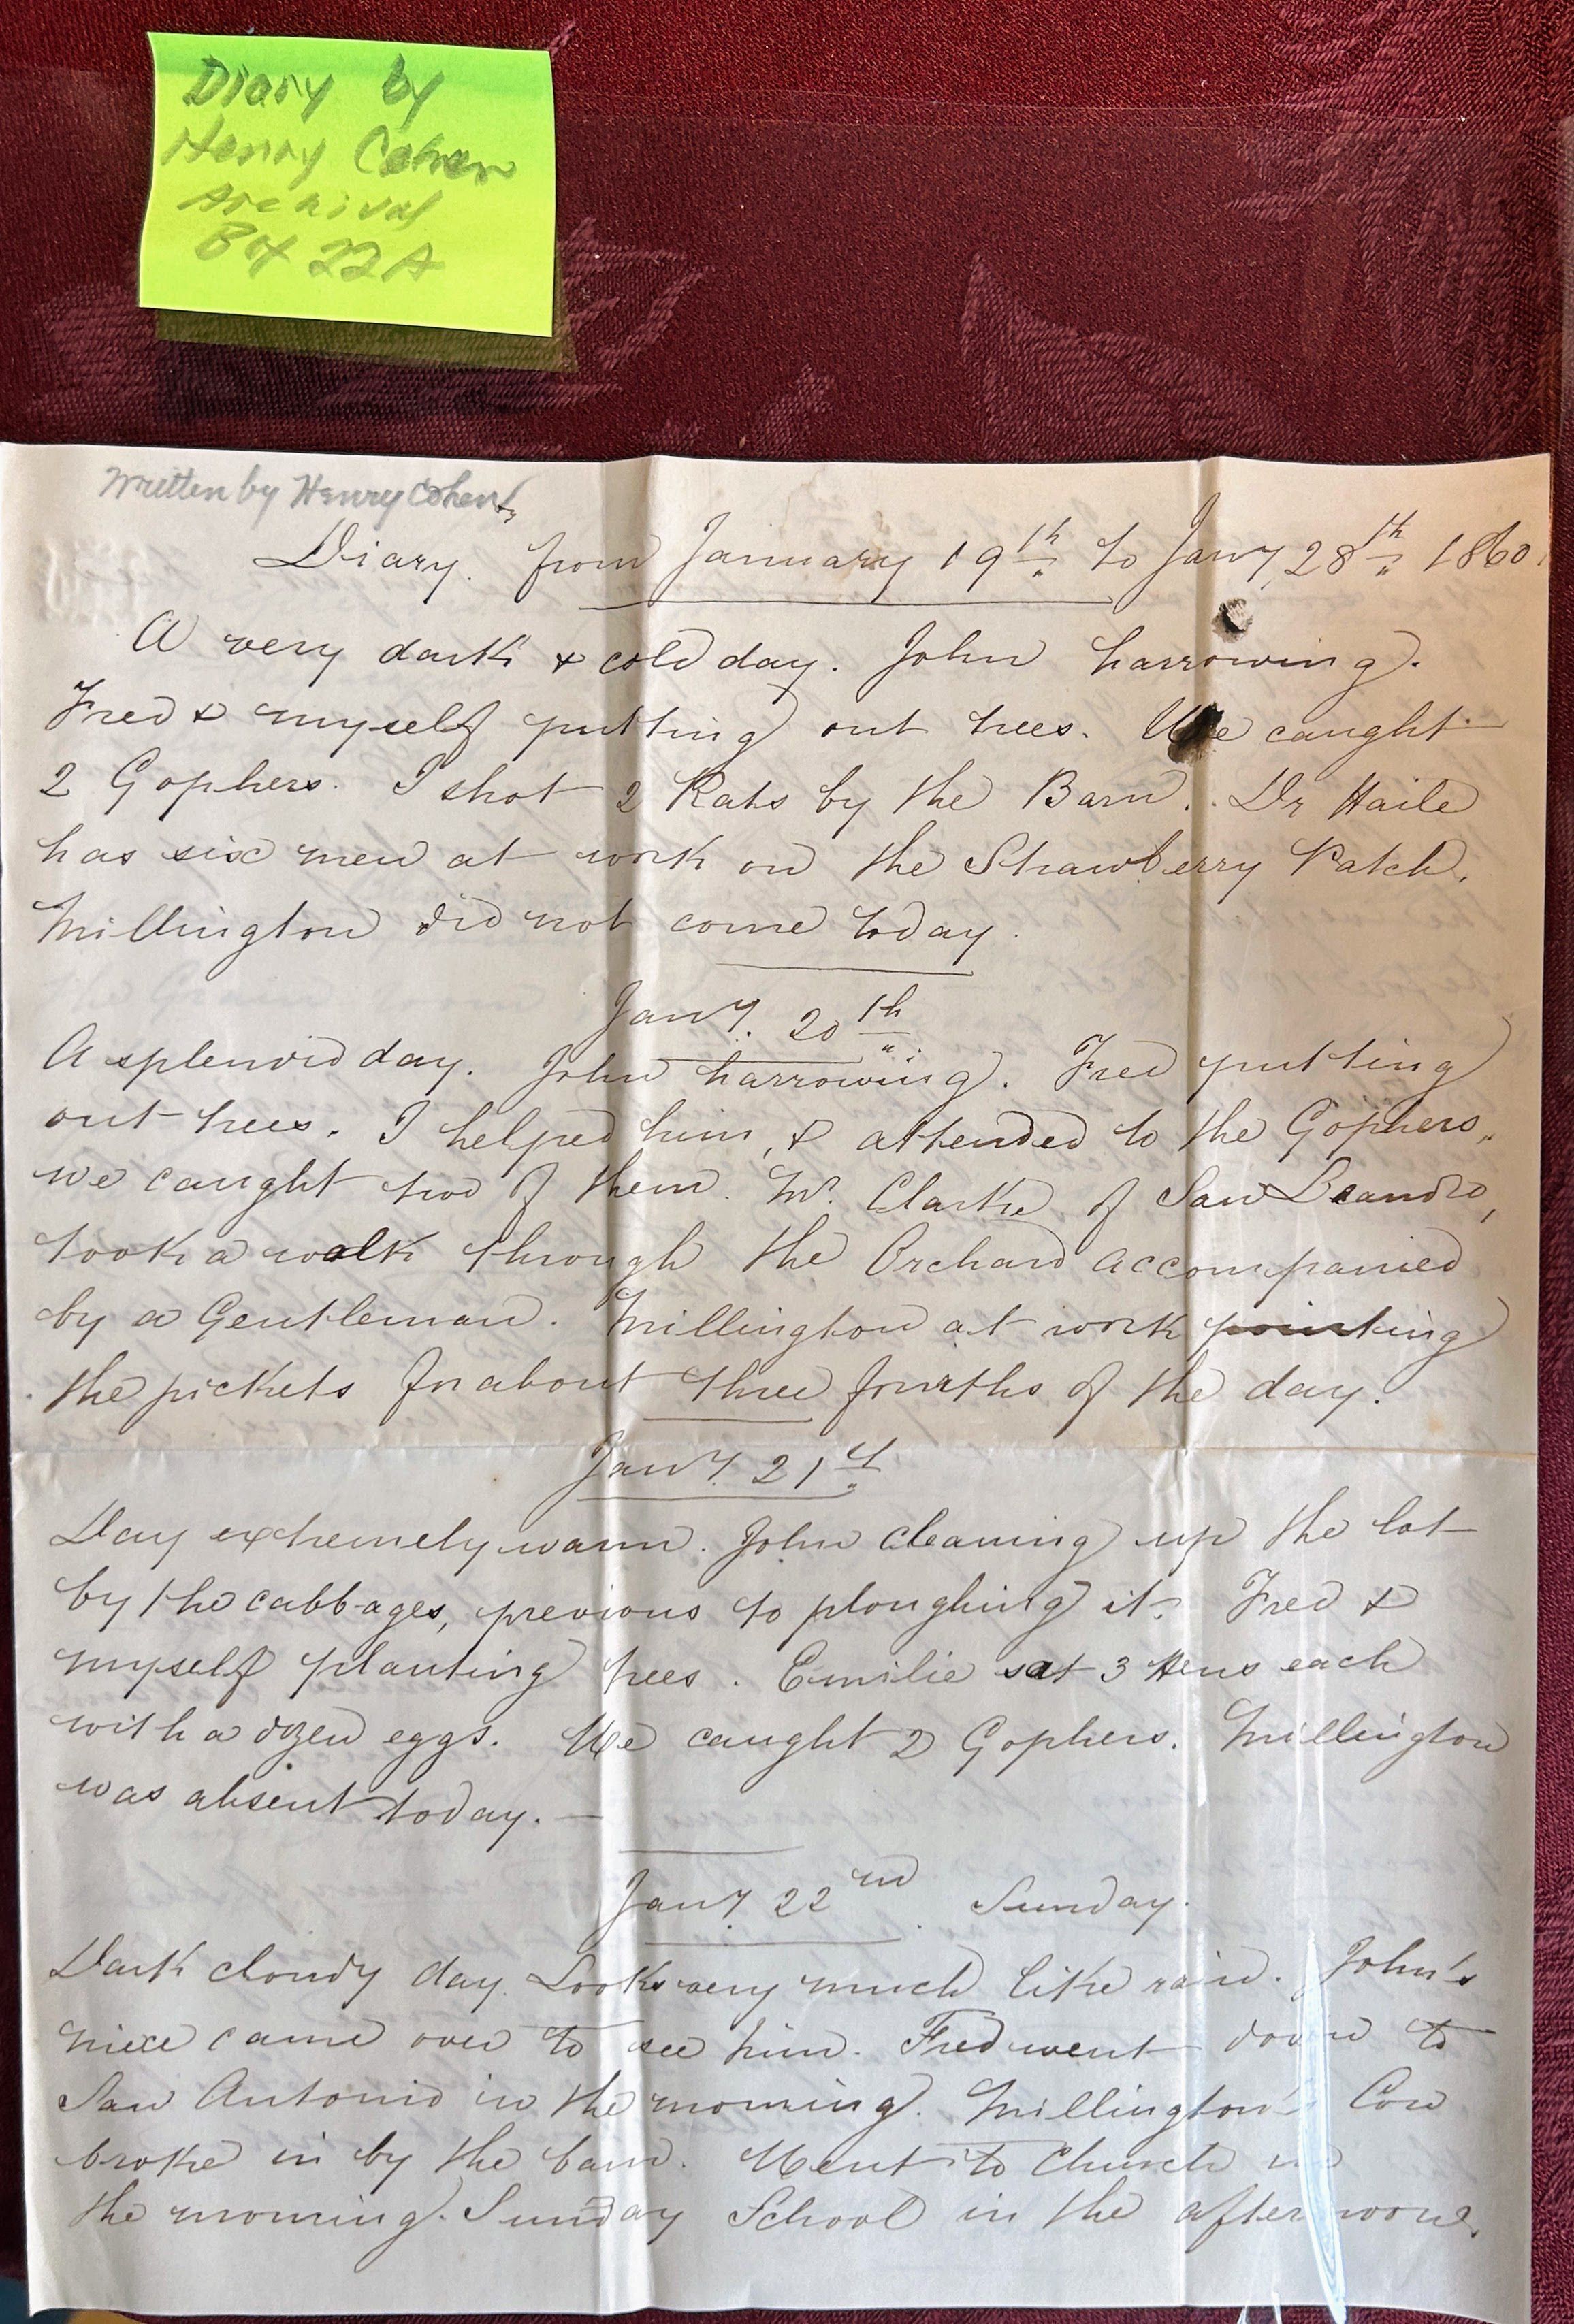 Diary by
Henry Cohen
Archival
Box 22A
Written by Henry Cohen
Diary. from January 19th to Jany 28th 1860.
A very dark & cold day. John harrowing.
Fred & myself putting out trees. We caught
2 Gophers. I shot 2 Rats by the Barn. Dr Haile
has six men at work on the Strawberry Patch.
Millington did not come today.
Jany. 20th
A splendid day. John harrowing. Fred putting
out trees. I helped him, & attended to the Gophers,
we caught two of them. Mr. Clarke of San Leandro,
took a walk through the Orchard accompanied
by a Gentleman. Millington at work pointing
the pickets for about three fourths of the day.
Jany. 21st
Day extremely warm. John cleaning up the lot
by the cabbages, previous to ploughing it. Fred &
myself planting trees. Emilie sat 3 Hens each
with a dozen eggs. We caught 2 Gophers. Millington
was absent today. —
Jany. 22nd. Sunday.
Dark cloudy day. Looks very much like rain. John's
niece came over to see him. Fred went down to
San Antonio in the morning. Millington's Cow
broke in by the barn. Went to Church in
the morning. Sunday School in the afternoon.